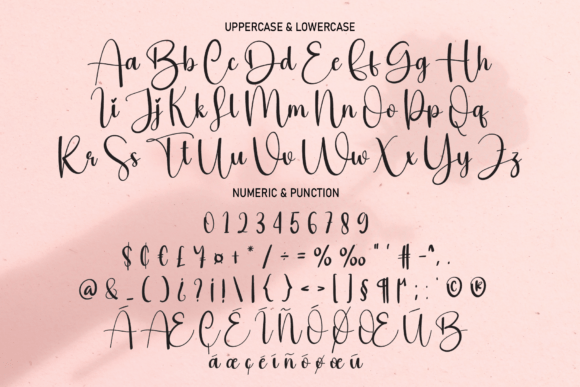 UPPERCASE & LOWERCASE
Aa Bb Cc Dd Ee Ff Gg Hh
Ii Jj Kk Ll Mm Nn Oo Pp Qq
Rr Ss Tt Uu Vv Ww Xx Yy Zz
NUMERIC & PUNCTION
0 1 2 3 4 5 6 7 8 9
$ ₵ € £ ¥ ¤ + * / ÷ = % ‰ " ' # ~ ^ , .
@ & _ ( ) ¿ ? ¡ ! \ | { } < > [ ] § ¶ ; : © ®
Á Æ Ç É Í Ñ Ó Ø Œ Ú ß
á æ ç é í ñ ó ø œ ú